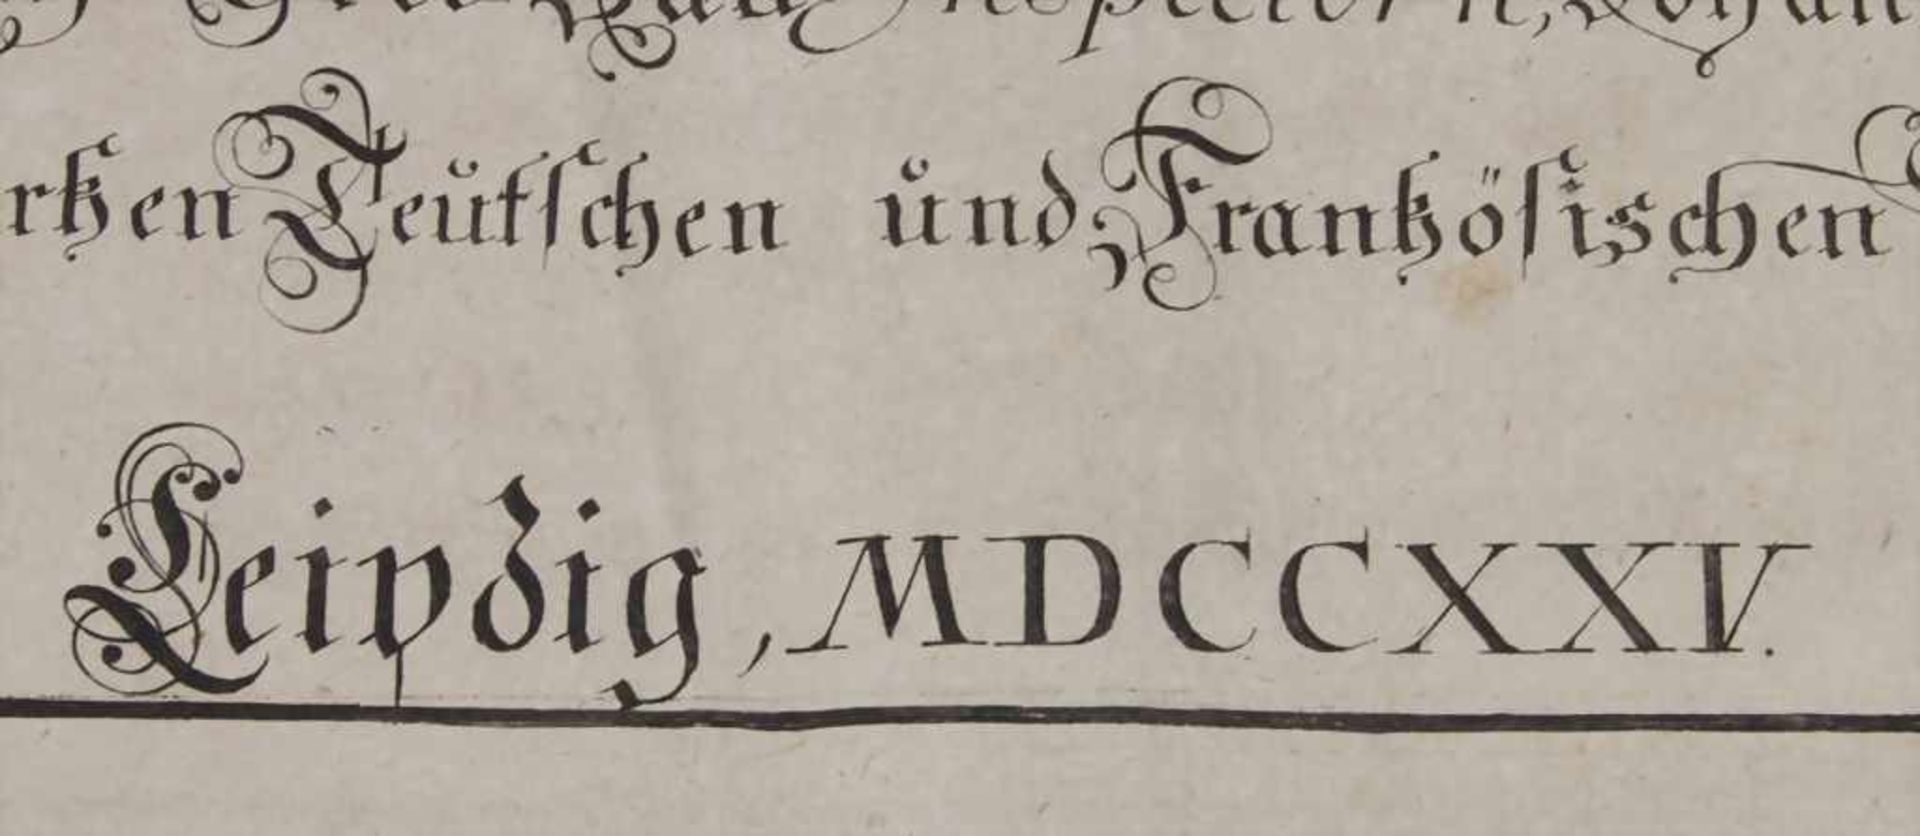 Inspectorn, Johan
rtzen Teütſchen ůnd Frantzöſischen
Leipzig, MDCCXXV.